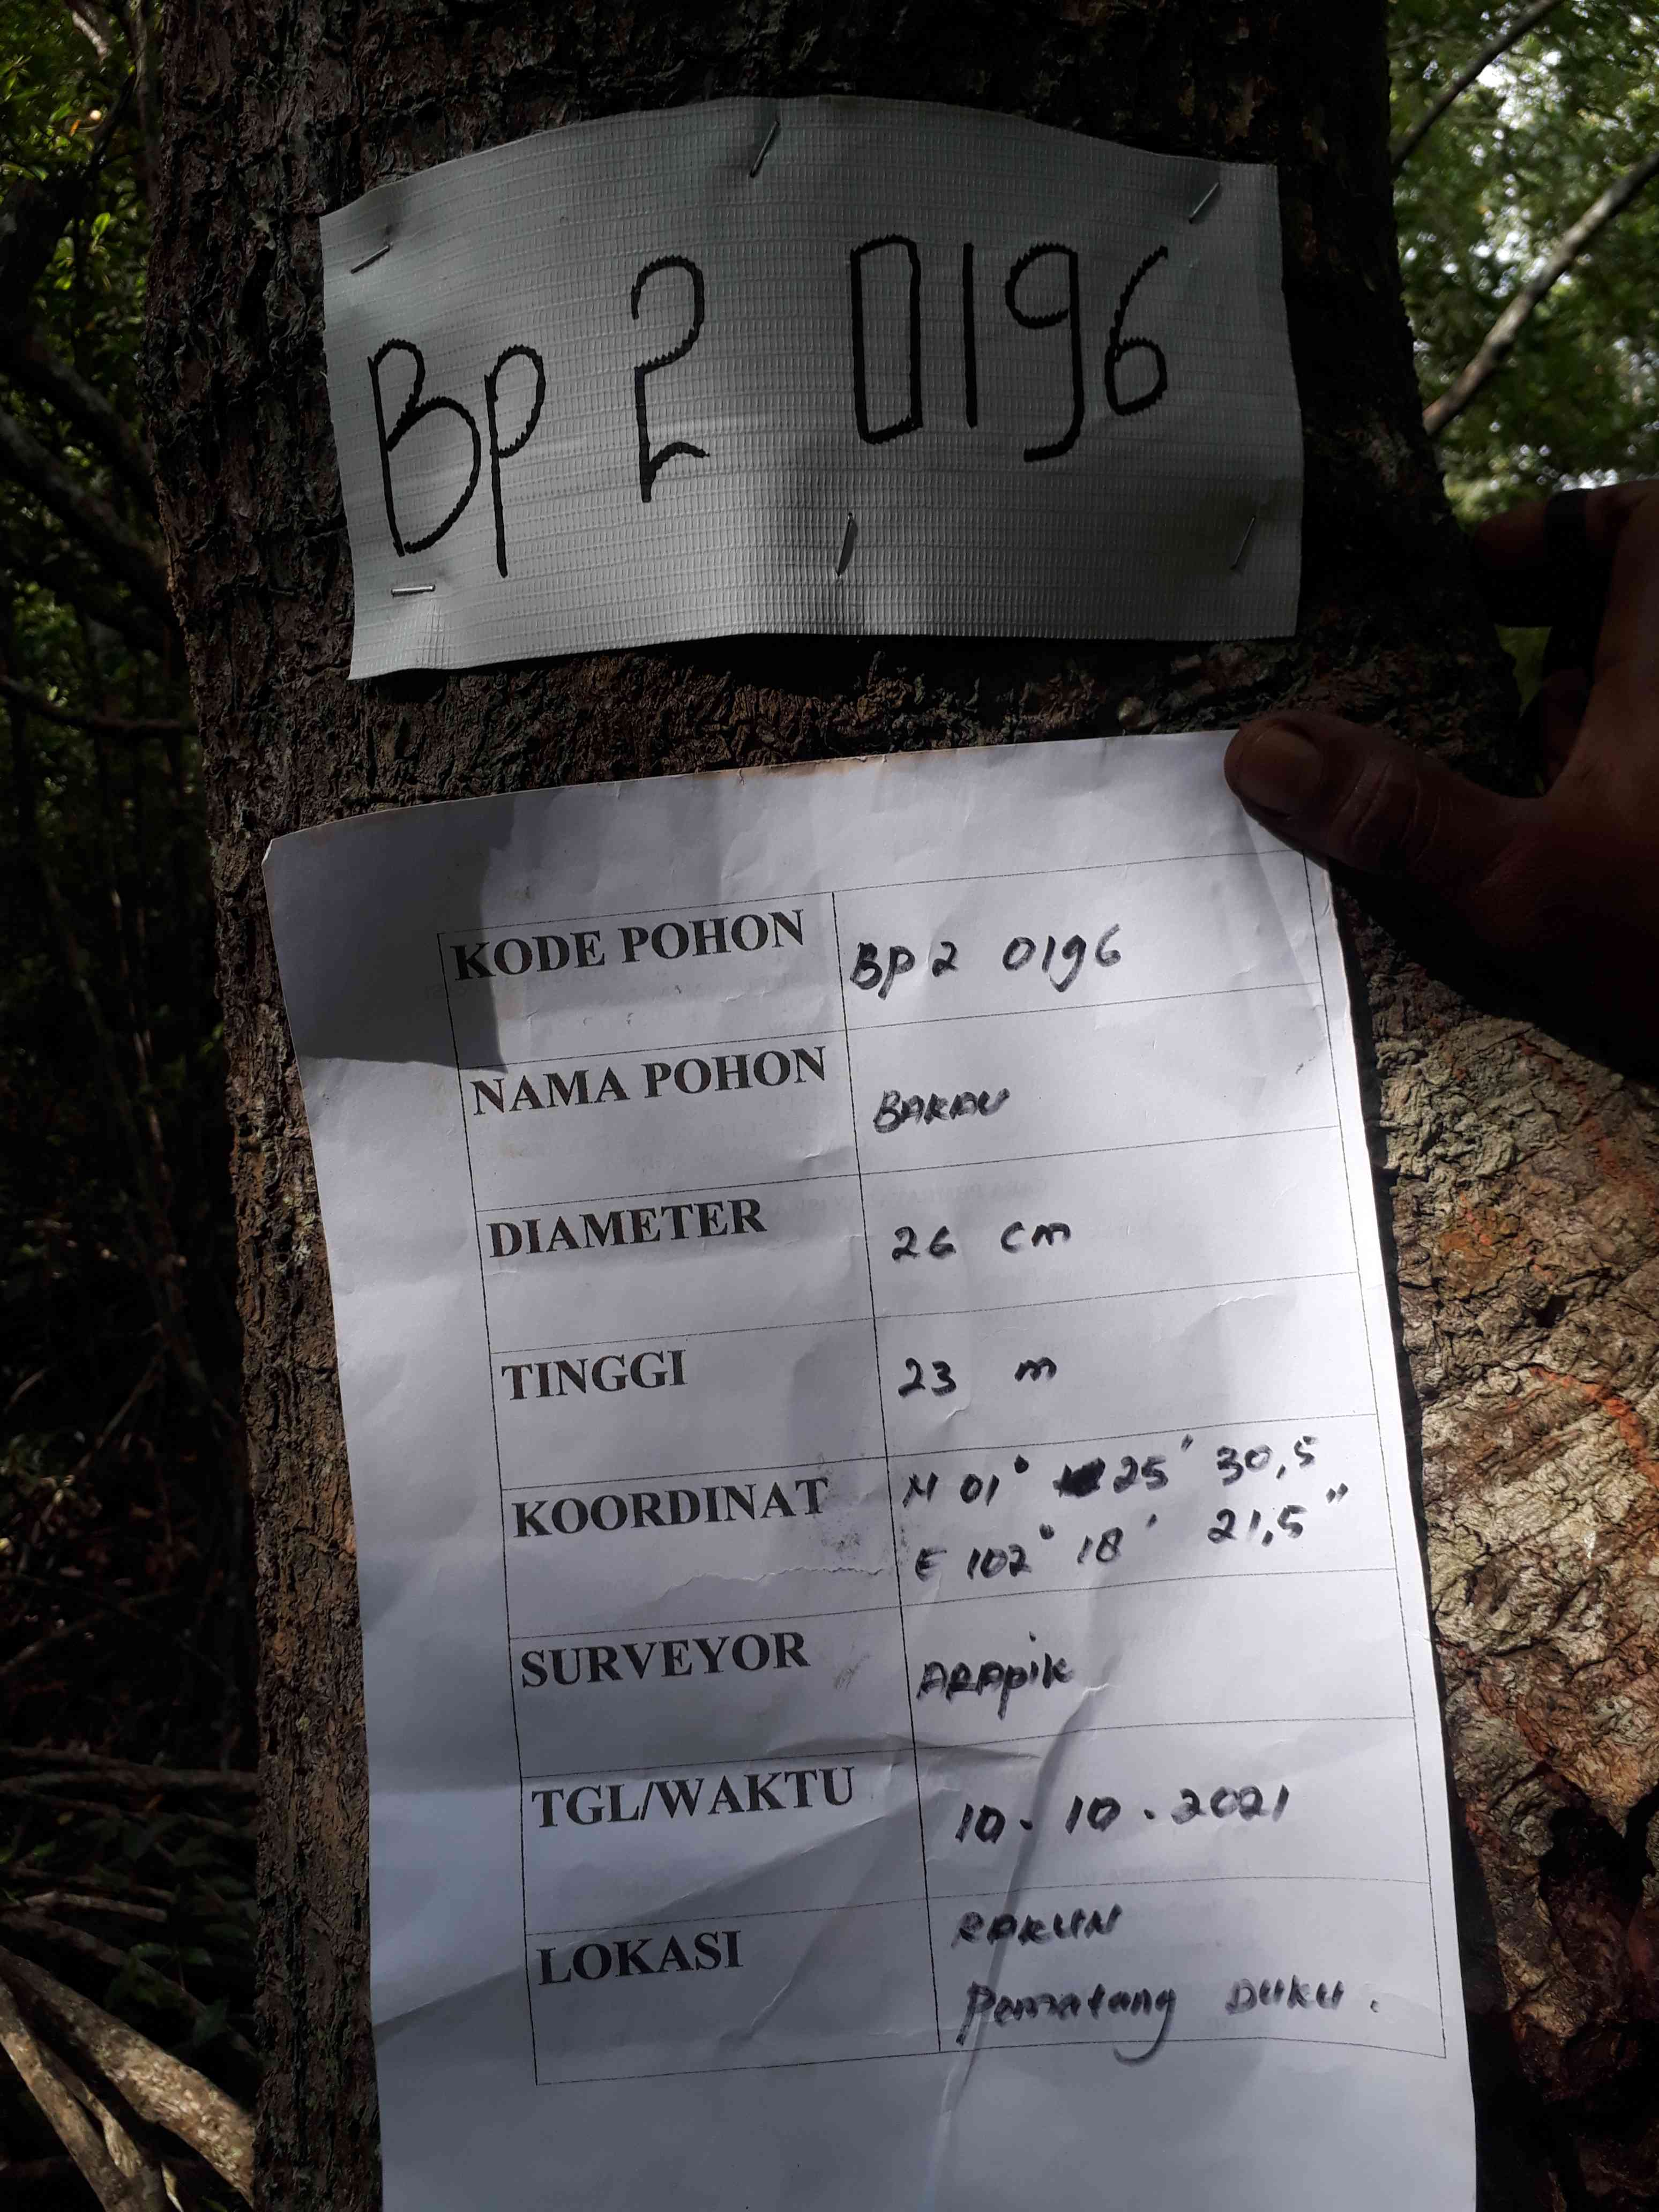 Bp 2 0196
KODE POHON BP 2 0196
NAMA POHON BAKAU
DIAMETER 26 cm
TINGGI 23 m
KOORDINAT N 01° 25' 30,5
E 102° 18' 21,5"
SURVEYOR ARApik
TGL/WAKTU 10 . 10 . 2021
LOKASI RAKUN
Pematang Duku .